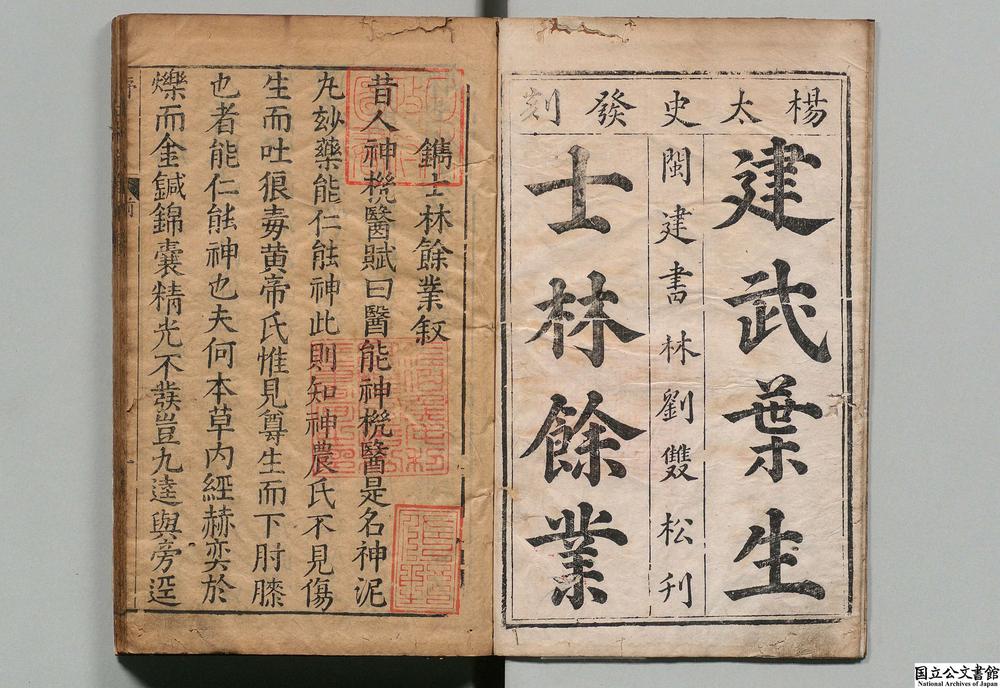 楊太史發刻
建武葉生
閩建書林劉雙松刋
士林餘業
鐫士林餘業叙
昔人神桄醫賦曰醫能神桄醫是名神泥
九玅藥能仁能神此則知神農氏不見傷
生而吐狼毒黄帝氏惟見尊生而下肘膝
也者能仁能神也夫何本草内經赫奕於
爍而金鍼錦囊精光不發豈九逵與旁逕
国立公文書館
National Archives of Japan